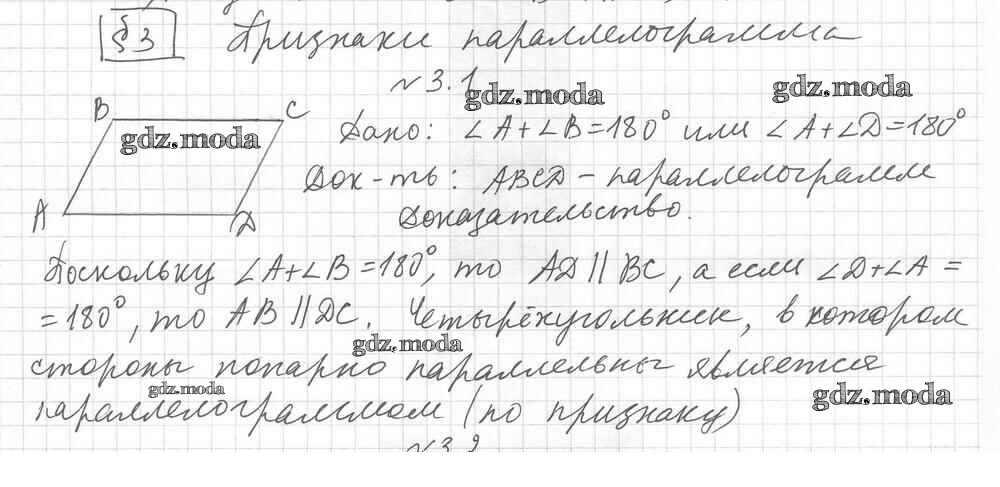 § 3 Признаки параллелограмма
№3.1
gdz.moda gdz.moda
B C
gdz.moda
Дано: ∠A+∠B=180° или ∠A+∠D=180°
Док-ть: ABCD - параллелограмм
A D
Доказательство.
Поскольку ∠A+∠B=180°, то AD || BC, а если ∠D+∠A =
=180°, то AB || DC. Четырёхугольник, в котором
gdz.moda
стороны попарно параллельны является
gdz.moda gdz.moda
параллелограммом (по признаку)